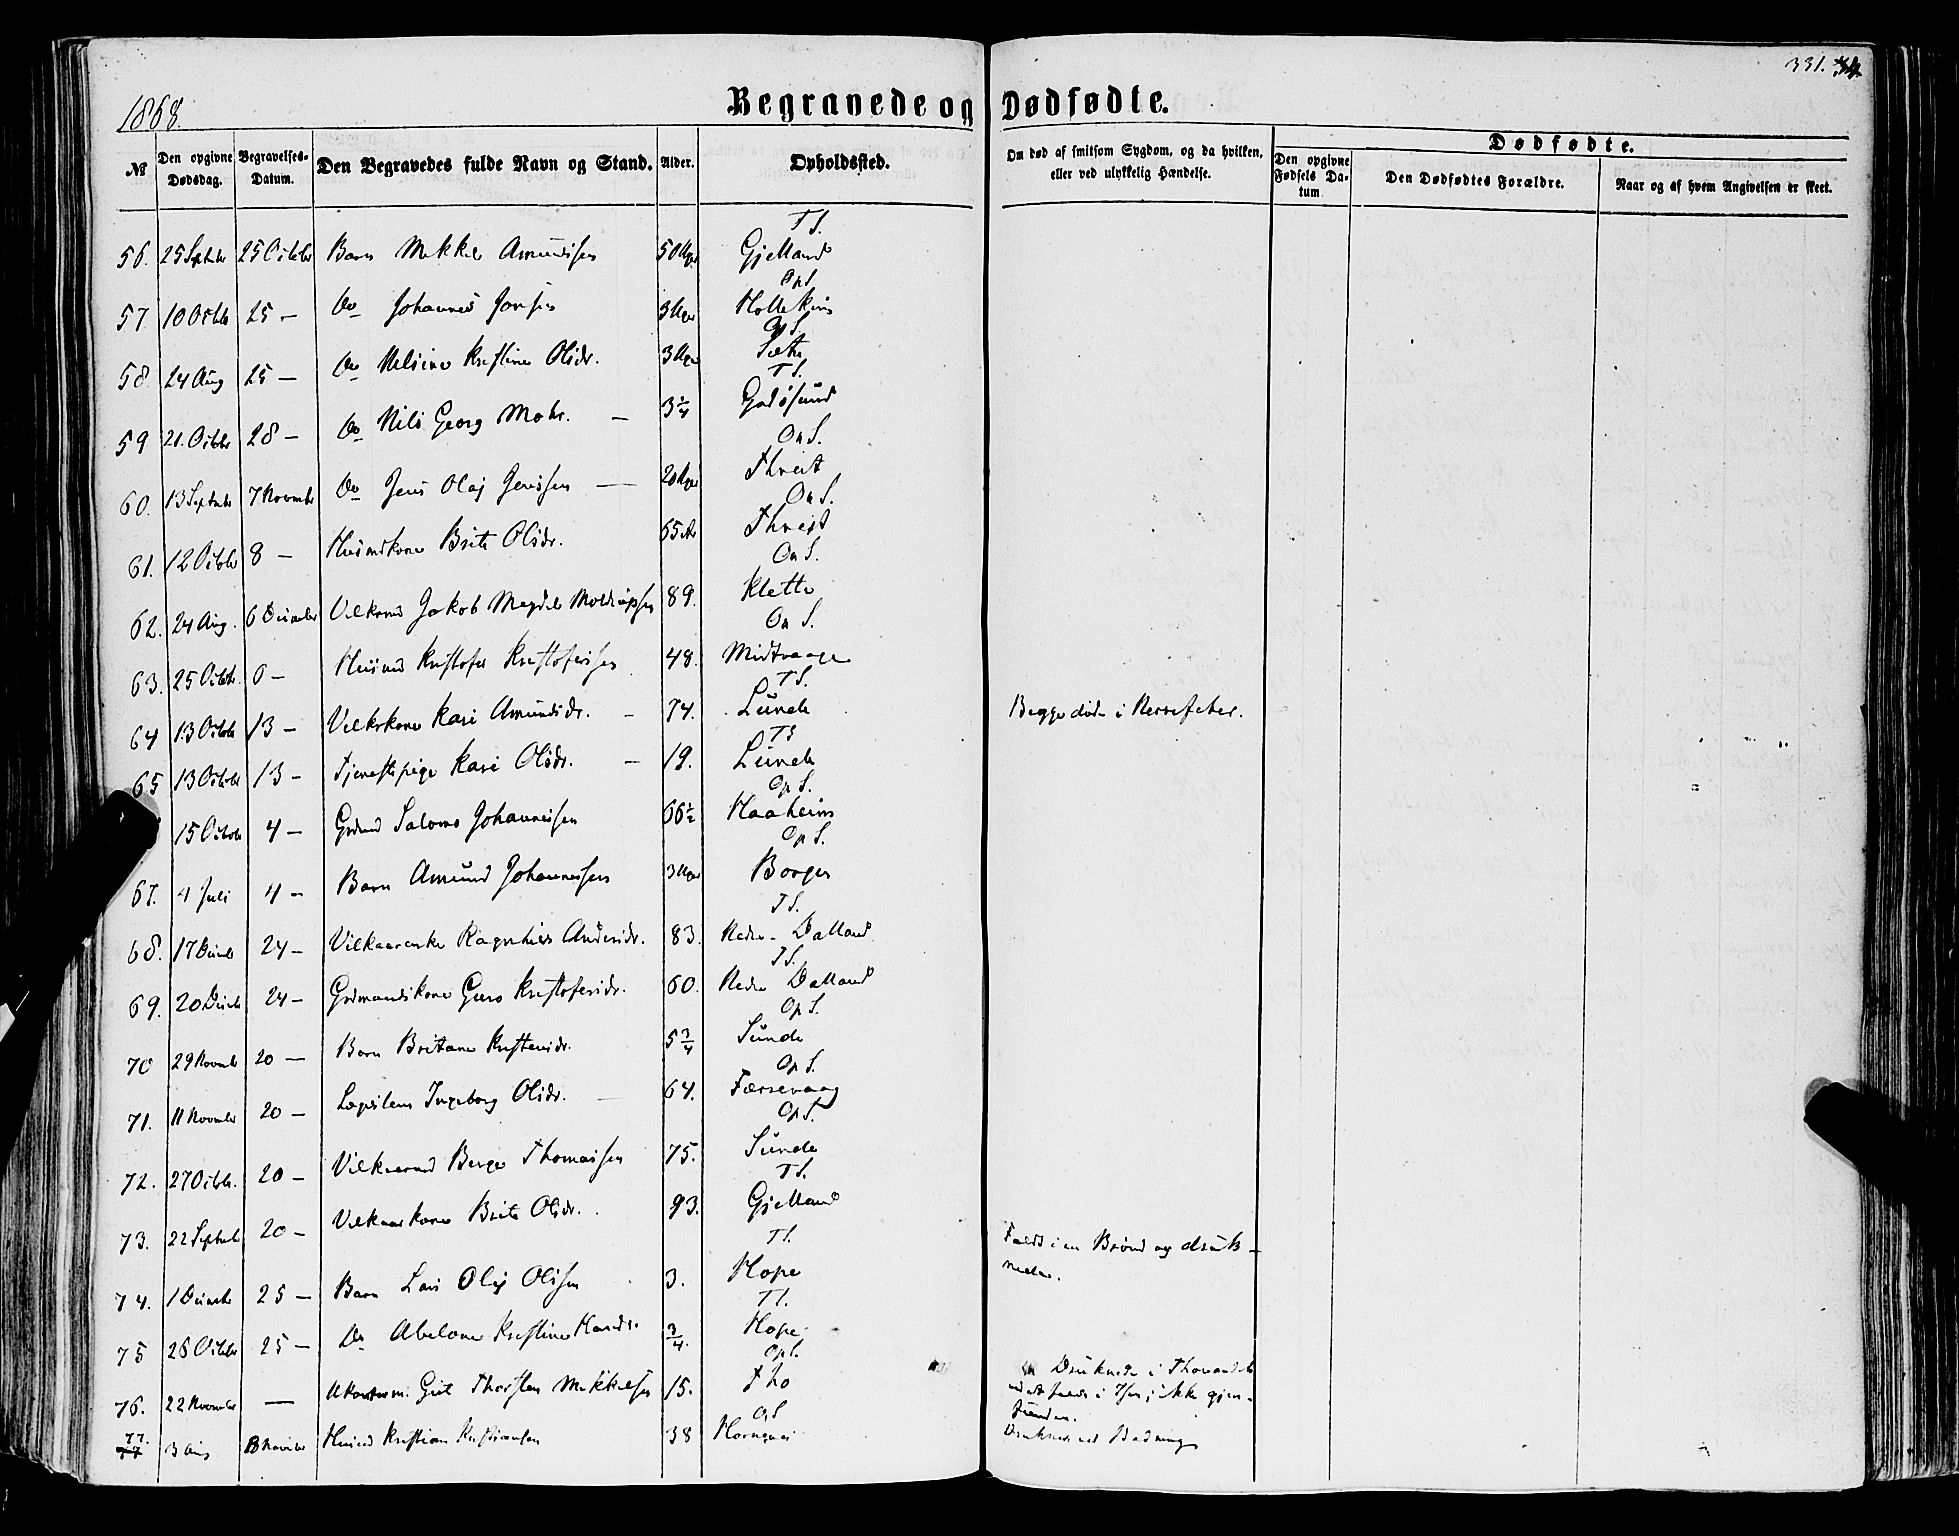 331.
1868.
Begravede og Dødfødte.
№ Den opgivne Dødsdag. Begravelses-Datum. Den Begravedes fulde Navn og Stand. Alder. Opholdssted. Om død af smitsom Sygdom, og da hvilken, eller ved ulykkelig Hændelse. Dødfødte.
Den opgivne Fødsels Datum Den Dødfødtes Forældre. Naar og af hvem Angivelsen er skeet.
T S.
56. 25 Septbr 25 Octobr Barn Mikkel Amundsen 50 Uger Gjelland
Op S.
57 10 Octbr 25 — Do Johannes Jonsen 3 Uger Hollekim
Op S.
58. 24 Aug 25 — Do Nilsine Kristine Olsdr. 3 Uger Sæte
T S.
59 21. Octobr 28 — Do Nils Georg Mohr. — 3 1/4 Godøsund
On S.
60. 13 Septembr 7 Novembr Do Jens Olaj Jensen — 20 Uger Thveit
On S.
61. 12 Octobr 8 — Husmdkone Brite Olsdr. 65 Thveit
On S.
62. 24 Aug. 6 Decembr Jakob Magdel 89. Kletto
On S.
63. 25 Octobr. 6 — Husmd Kristofer Kristofersen 48. Midtvaage
T S.
64 13 Octobr 13 — Vilkrkone Kari Amundsdr. — 74. Lunde Begge døde i Nervefeber.
T S
65 13 Octobr 13 — Tjenestepige Kari Olsdr. — 19. Lunde
Op S.
15 Octobr 4 — Grdmd Salomo Johannessen 66 1/2 Haaheim
Op S.
67. 4 Juli 4 — Barn Amund Johannessen 3 Uger Borgen
T S.
68. 17 Decembr 24 — Vilkaarenke Ragnhild Andersdr. 83. Nedre Dalland
T S.
69. 20 Decbr 24 — Grdmandskone Guro Kristofersdr. 60. Nedre Dalland
Op S.
70 29 Novembr 20 — Barn Britane Kristensdr. 5 3/4 Sunde
Op S.
71. 11 Novembr 20 — Lægdslem Ingeborg Olsdr. — 64. Færsevaag
Op S.
72. 27 Octbr. 20 — Vilkaarmd Berge Thomassen 75. Sunde
T S.
73. 22 Septembr 20 — Vilkaarkone Brite Olsdr. 93. Gjelland
T S.
74. 1 Decembr 25 — Barn Lars Olaj Olsen 3. Hope Faldt i en Brønd og druk-
nede.
T S.
75 26 Octobr 25 — Do Abelone Kristine Hansdr. 3/4. Hope
Op S.
76. 22 Novembr — Ukonferm. Gut Thorsten Mikkelsen 15. Tho Druknede i
ved at falde i Isen, ikke gjen-
funden.
On S
77. 3 Aug 13 Novbr Husmd Kristian Kristiansen 38 Hornnæs Druknede ved Badning